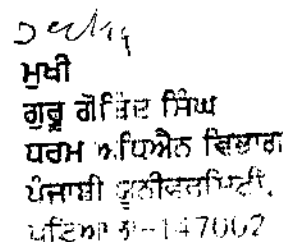 ਮੁਖੀ
ਗੁਰੂ ਗੋਬਿੰਦ ਸਿੰਘ
ਧਰਮ ਅਧਿਐਨ ਵਿਭਾਗ
ਪੰਜਾਬੀ ਯੂਨੀਵਰਸਿਟੀ,
ਪਟਿਆਲਾ-147002